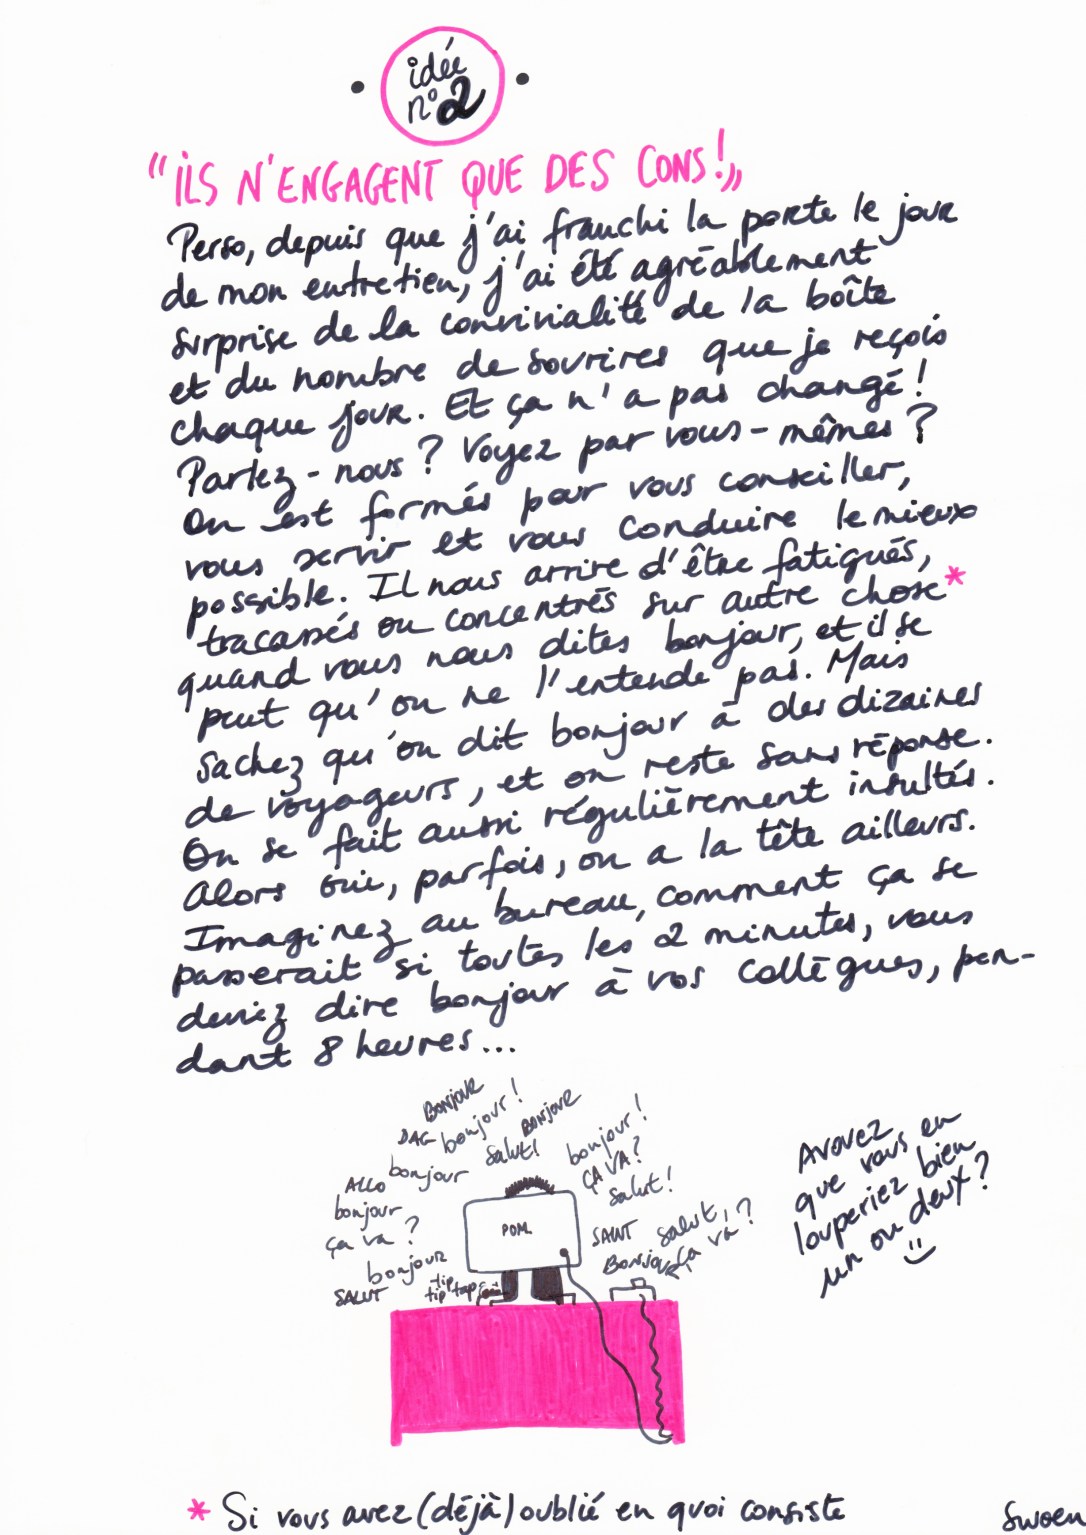 idée
n°2
"ILS N'ENGAGENT QUE DES CONS!"
Perso, depuis que j'ai franchi la porte le jour
de mon entretien, j'ai été agréablement
surprise de la convivialité de la boîte
et du nombre de sourires que je reçois
chaque jour. Et ça n'a pas changé!
Parlez-nous? Voyez par vous-mêmes?
On est formés pour vous conseiller,
vous servir et vous conduire le mieux
possible. Il nous arrive d'être fatigués,
tracassés ou concentrés sur autre chose*
quand vous nous dites bonjour, et il se
peut qu'on ne l'entende pas. Mais
sachez qu'on dit bonjour à des dizaines
de voyageurs, et on reste sans réponse.
On se fait aussi régulièrement insultés.
Alors oui, parfois, on a la tête ailleurs.
Imaginez au bureau, comment ça se
passerait si toutes les 2 minutes, vous
deviez dire bonjour à vos collègues, pen-
dant 8 heures...
BONJOUR
DAG bonjour! BONJOUR
Salut!
bonjour!
ÇA VA?
Salut!
ALLO bonjour
bonjour
ça va?
bonjour
SALUT
tip
tip tap
POM.
SALUT
Salut,
ça va?
BONJOUR
Avouez
que vous en
louperiez bien
un ou deux?
* Si vous avez (déjà) oublié en quoi consiste
Swoen